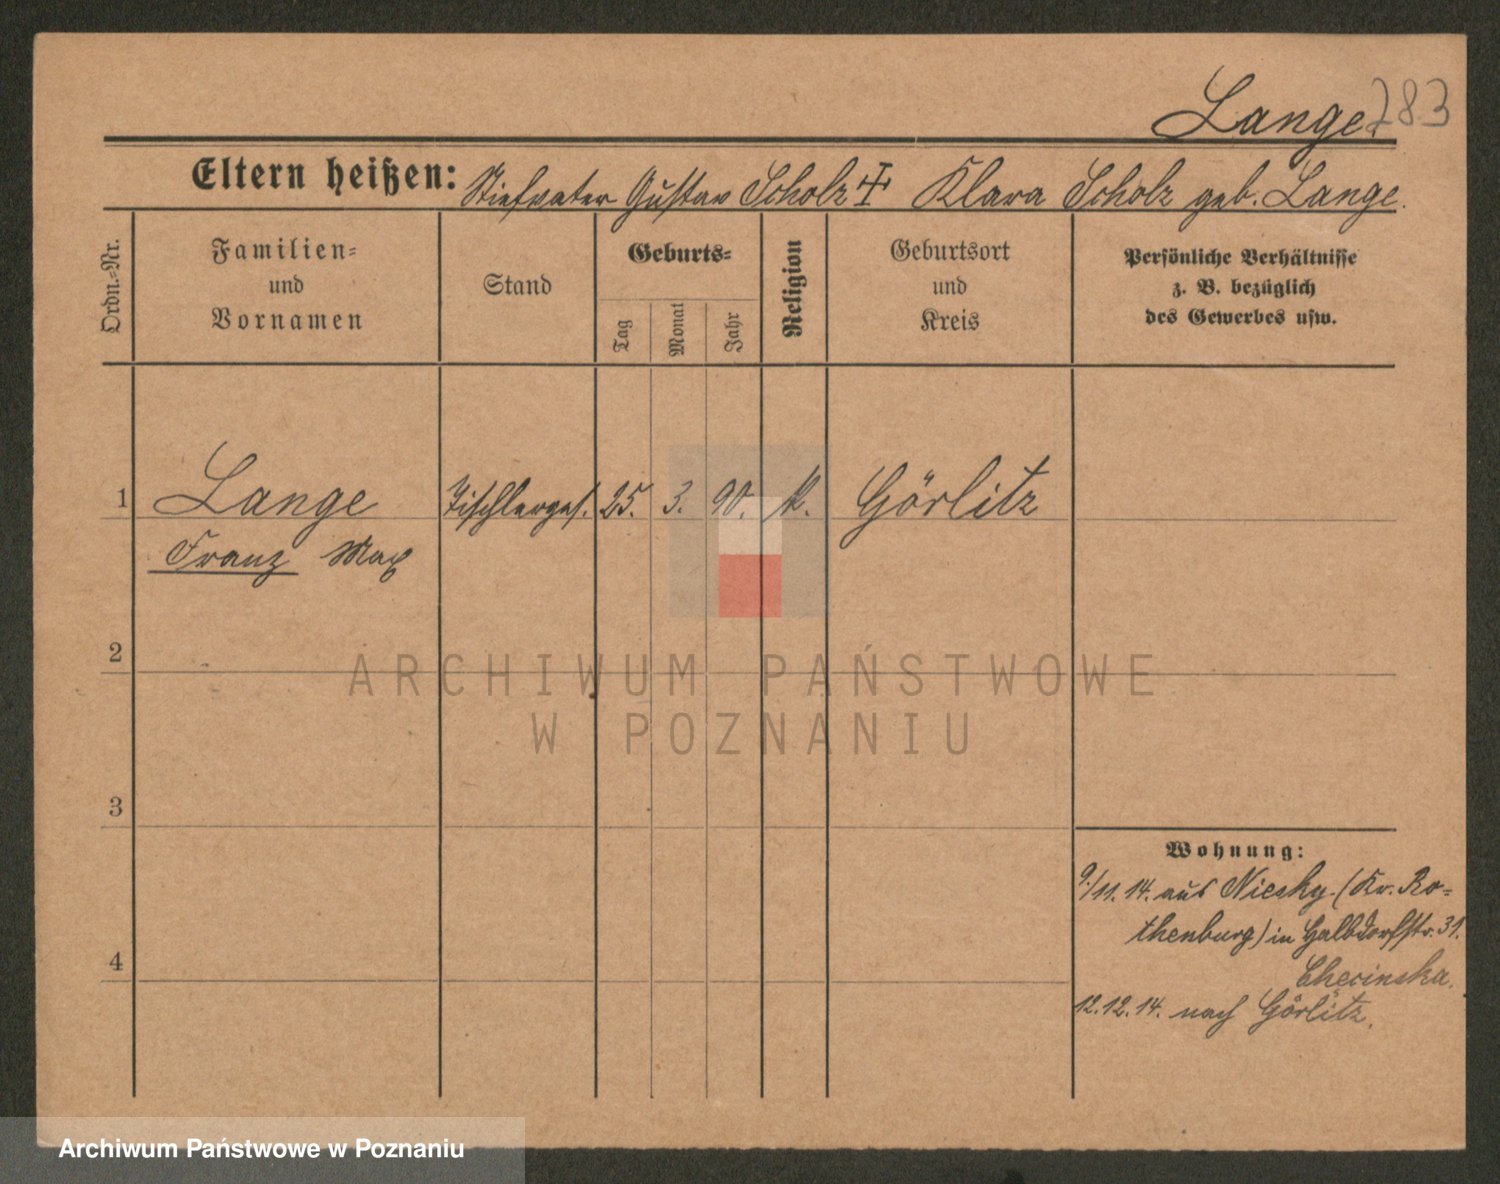 Lange. 283
Eltern heißen: Stiefvater Gustav Scholz ✝ Klara Scholz geb. Lange.
Ordn.-Nr.
Familien-
und
Vornamen
Stand
Geburts-
Tag
Monat
Jahr
Religion
Geburtsort
und
Kreis
Persönliche Verhältnisse
z. B. bezüglich
des Gewerbes usw.
1 Lange Tischlerges. 25. 3. 90. k. Görlitz
Franz Max
2
ARCHIWUM PAŃSTWOWE
W POZNANIU
3
Wohnung:
9./11. 14. aus Niesky. (Kr. Ro-
thenburg) in Halbdorfstr. 31.
4
12.12.14. nach Görlitz.
Archiwum Państwowe w Poznaniu